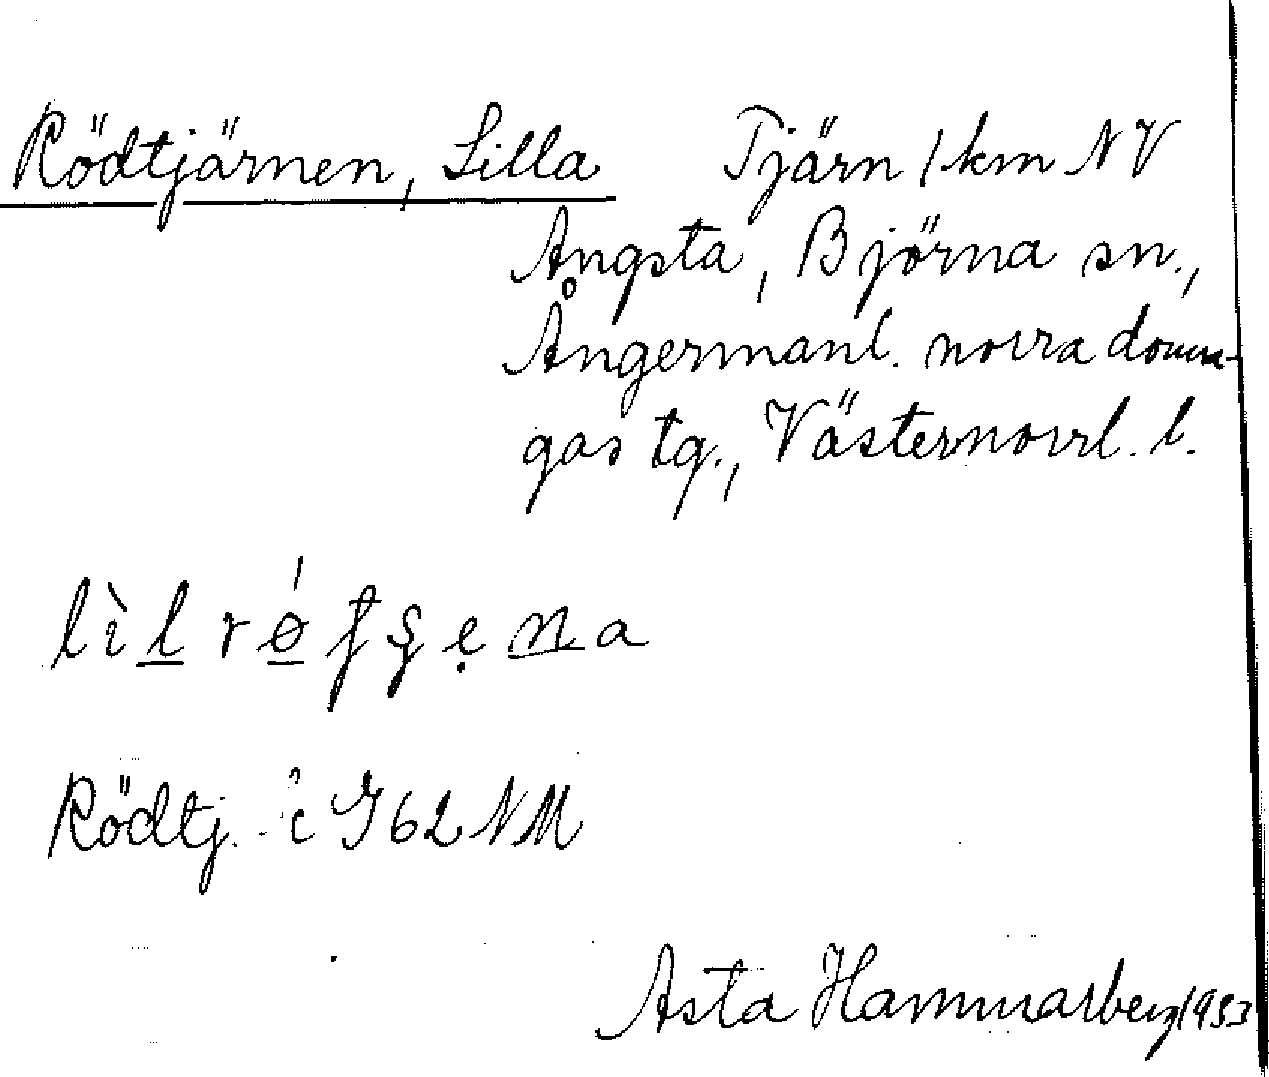 Rödtjärnen, Lilla Tjärn 1 km NV
Ängsta, Björna sn.,
Ångermanl. norra domsa-
gas tg., Västernorrl. l.
Rödtj. i J 62 NM
Asta Hammarberg 1933